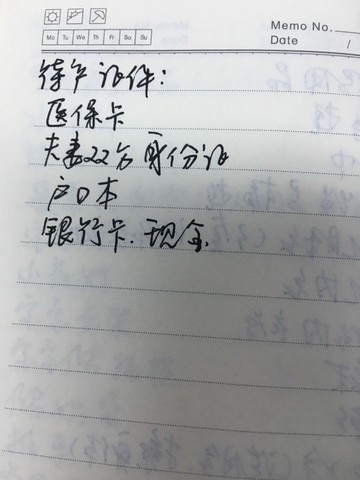 Memo No.
Mo Tu We Th Fr Sa Su
Date /
待产证件：
医保卡
夫妻双方身份证
户口本
银行卡.现金.